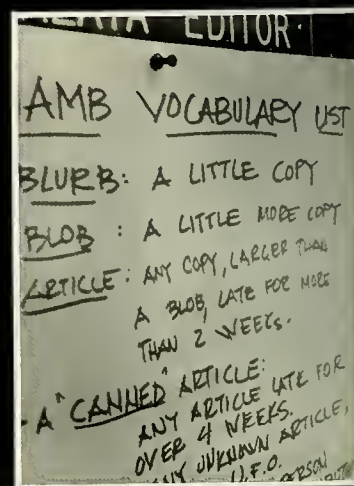 EDITOR
AMB VOCABULARY LIST
BLURB: A LITTLE COPY
BLOB: A LITTLE MORE COPY
ARTICLE: ANY COPY, LARGER THAN
A BLOB, LATE FOR MORE
THAN 2 WEEKS.
A "CANNED" ARTICLE:
ANY ARTICLE LATE FOR
OVER 4 WEEKS.
ANY UNKNOWN ARTICLE,
U.F.O.
PERSON